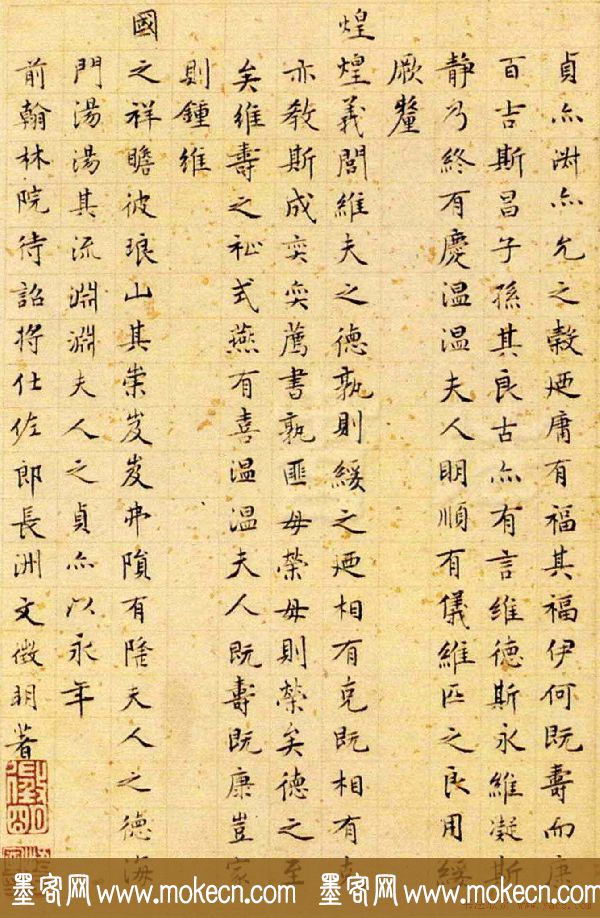 貞亦淑亦允之穀廼庸有福其福伊何既壽而康
百吉斯昌子孫其良古亦有言維德斯永維凝斯
静乃終有慶温温夫人明順有儀維匹之良用綏
厥釐
煌煌義閣維夫之德孰則綏之廼相有克既相有
亦教斯成奕奕薦書孰匪母榮母則榮矣德之至
矣維壽之祉式燕有喜温温夫人既壽既康豈家
則鍾維
國之祥瞻彼琅山其崇岌岌弗隕有隆夫人之德海
門湯湯其流淵淵夫人之貞亦以永年
前翰林院待詔將仕佐郎長洲文徵明著
墨客网 www.mokecn.com 墨客网 www.mokecn.com